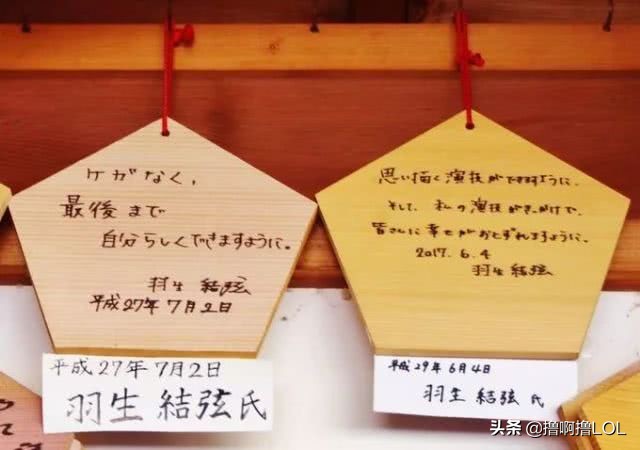 ケガなく、
最後まで
自分らしくできますように。
羽生 結弦
平成27年7月2日
平成27年7月2日
羽生 結弦 氏
思い描く演技ができますように。
そして、私の演技がきっかけで、
皆さんに幸せがおとずれますように。
2017. 6. 4
羽生 結弦
平成29年6月4日
羽生 結弦 氏
头条 @撸啊撸LOL